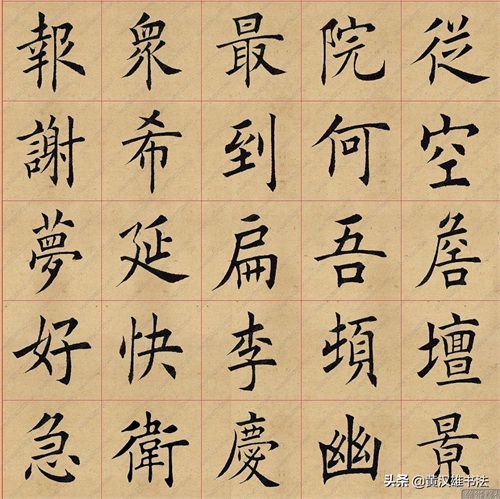 報衆最院從
謝希到何空
夢延扁吾詹
好快李頓壇
急衛慶幽景
头条 @黄汉雄书法